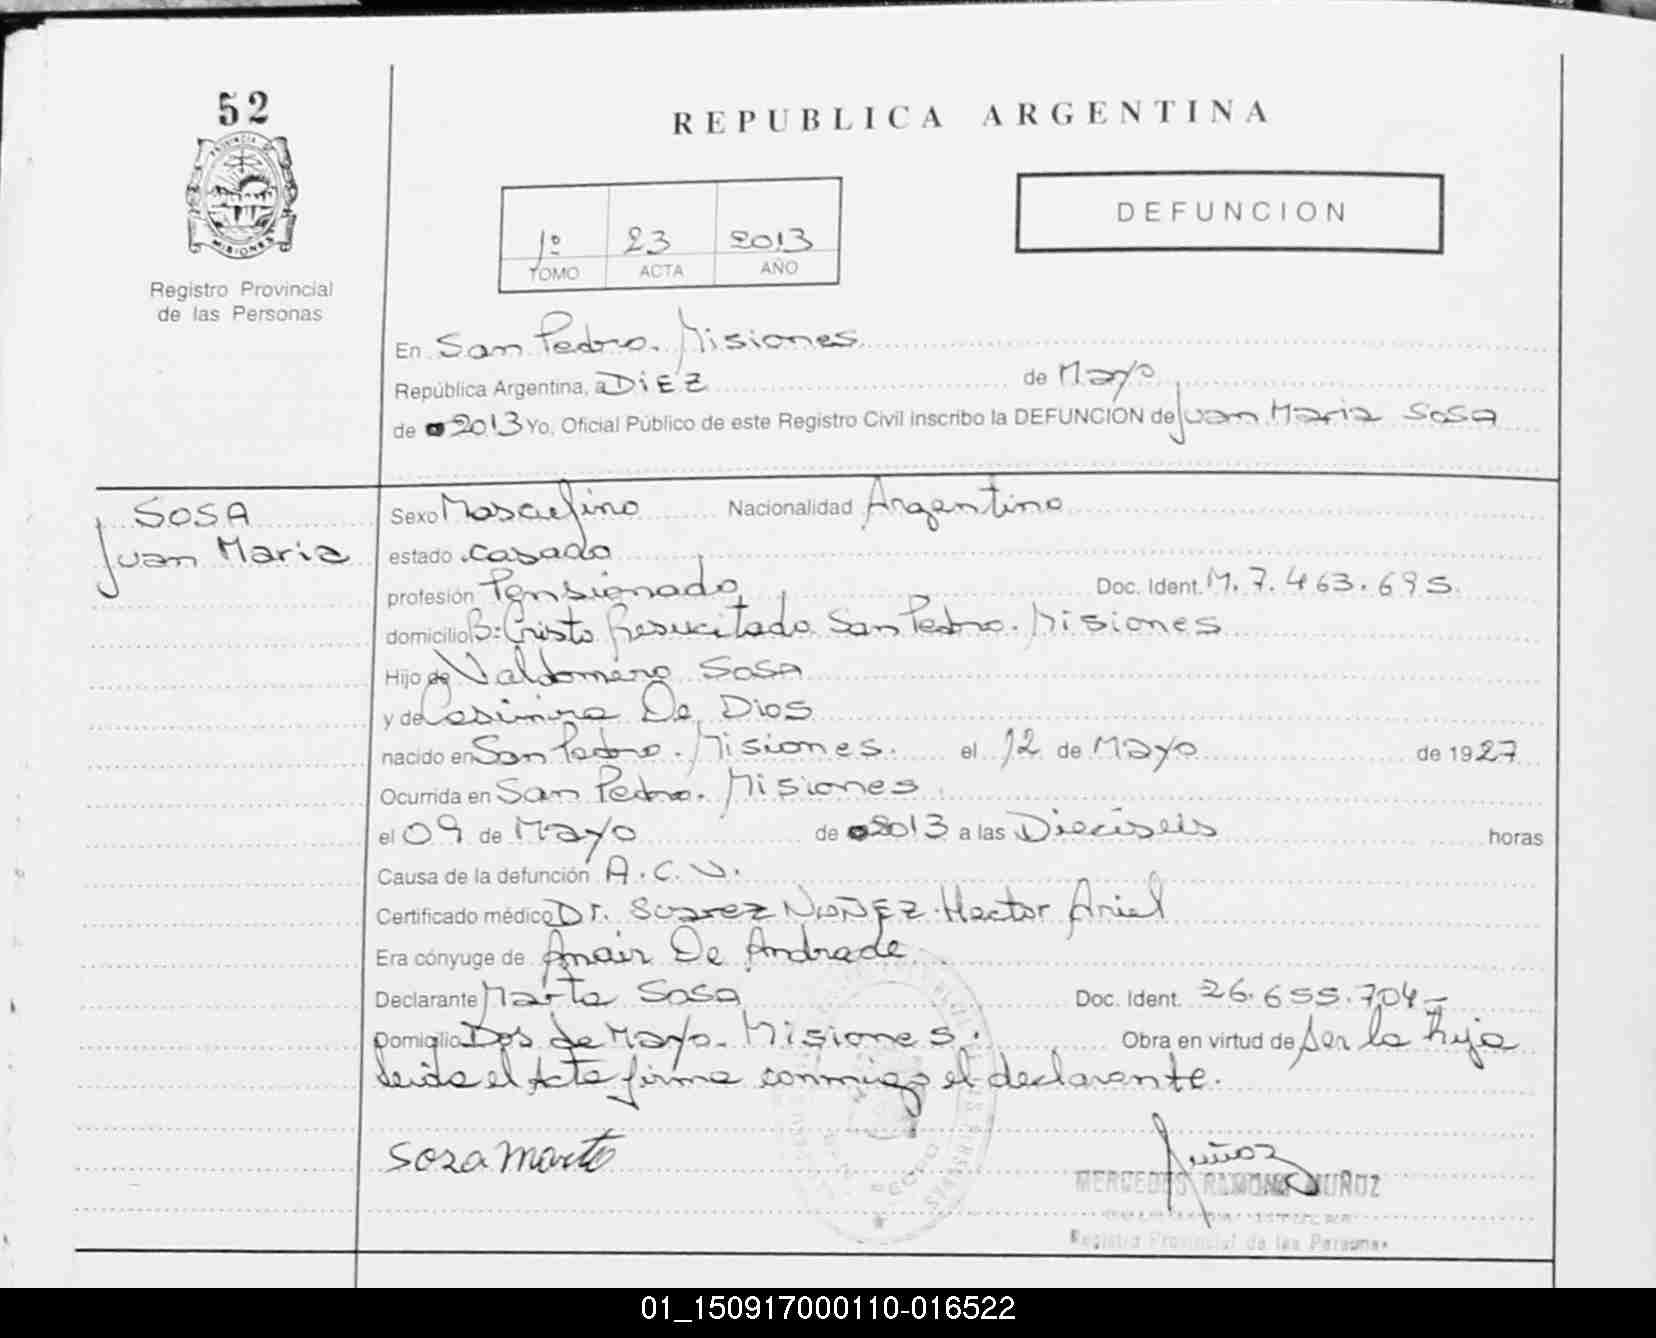 52
REPUBLICA ARGENTINA
PROVINCIA DE
MISIONES
DEFUNCION
1º 23 2013
TOMO ACTA AÑO
Registro Provincial
de las Personas
En San Pedro. Misiones
República Argentina, a DiEZ de Mayo
de 2013 Yo, Oficial Público de este Registro Civil inscribo la DEFUNCION de Juan Maria SOSA
SOSA
Juan Maria
Sexo Masculino Nacionalidad Argentino
estado casado
profesión Pensionado Doc. Ident. M. 7.463.695.
domicilio Bº Cristo Resucitado San Pedro. Misiones
Hijo de Valdomero SOSA
y de Casimira De Dios
nacido en San Pedro. Misiones. el 12 de Mayo de 1927
Ocurrida en San Pedro. Misiones
el 09 de Mayo de 2013 a las Dieciseis horas
Causa de la defunción A.C.V.
Certificado médico Dr. Suarez NuÑEZ Hector Ariel
Era cónyuge de Anair De Andrade
Declarante Marta Sosa Doc. Ident. 26.655.704-
Domicilio Dos de Mayo. Misiones. Obra en virtud de ser la hija
Leida el Acta firma conmigo el declarante.
Soza Marta
Muñoz
MERCEDES RAMONA MUÑOZ
Registro Provincial de las Personas
01_150917000110-016522